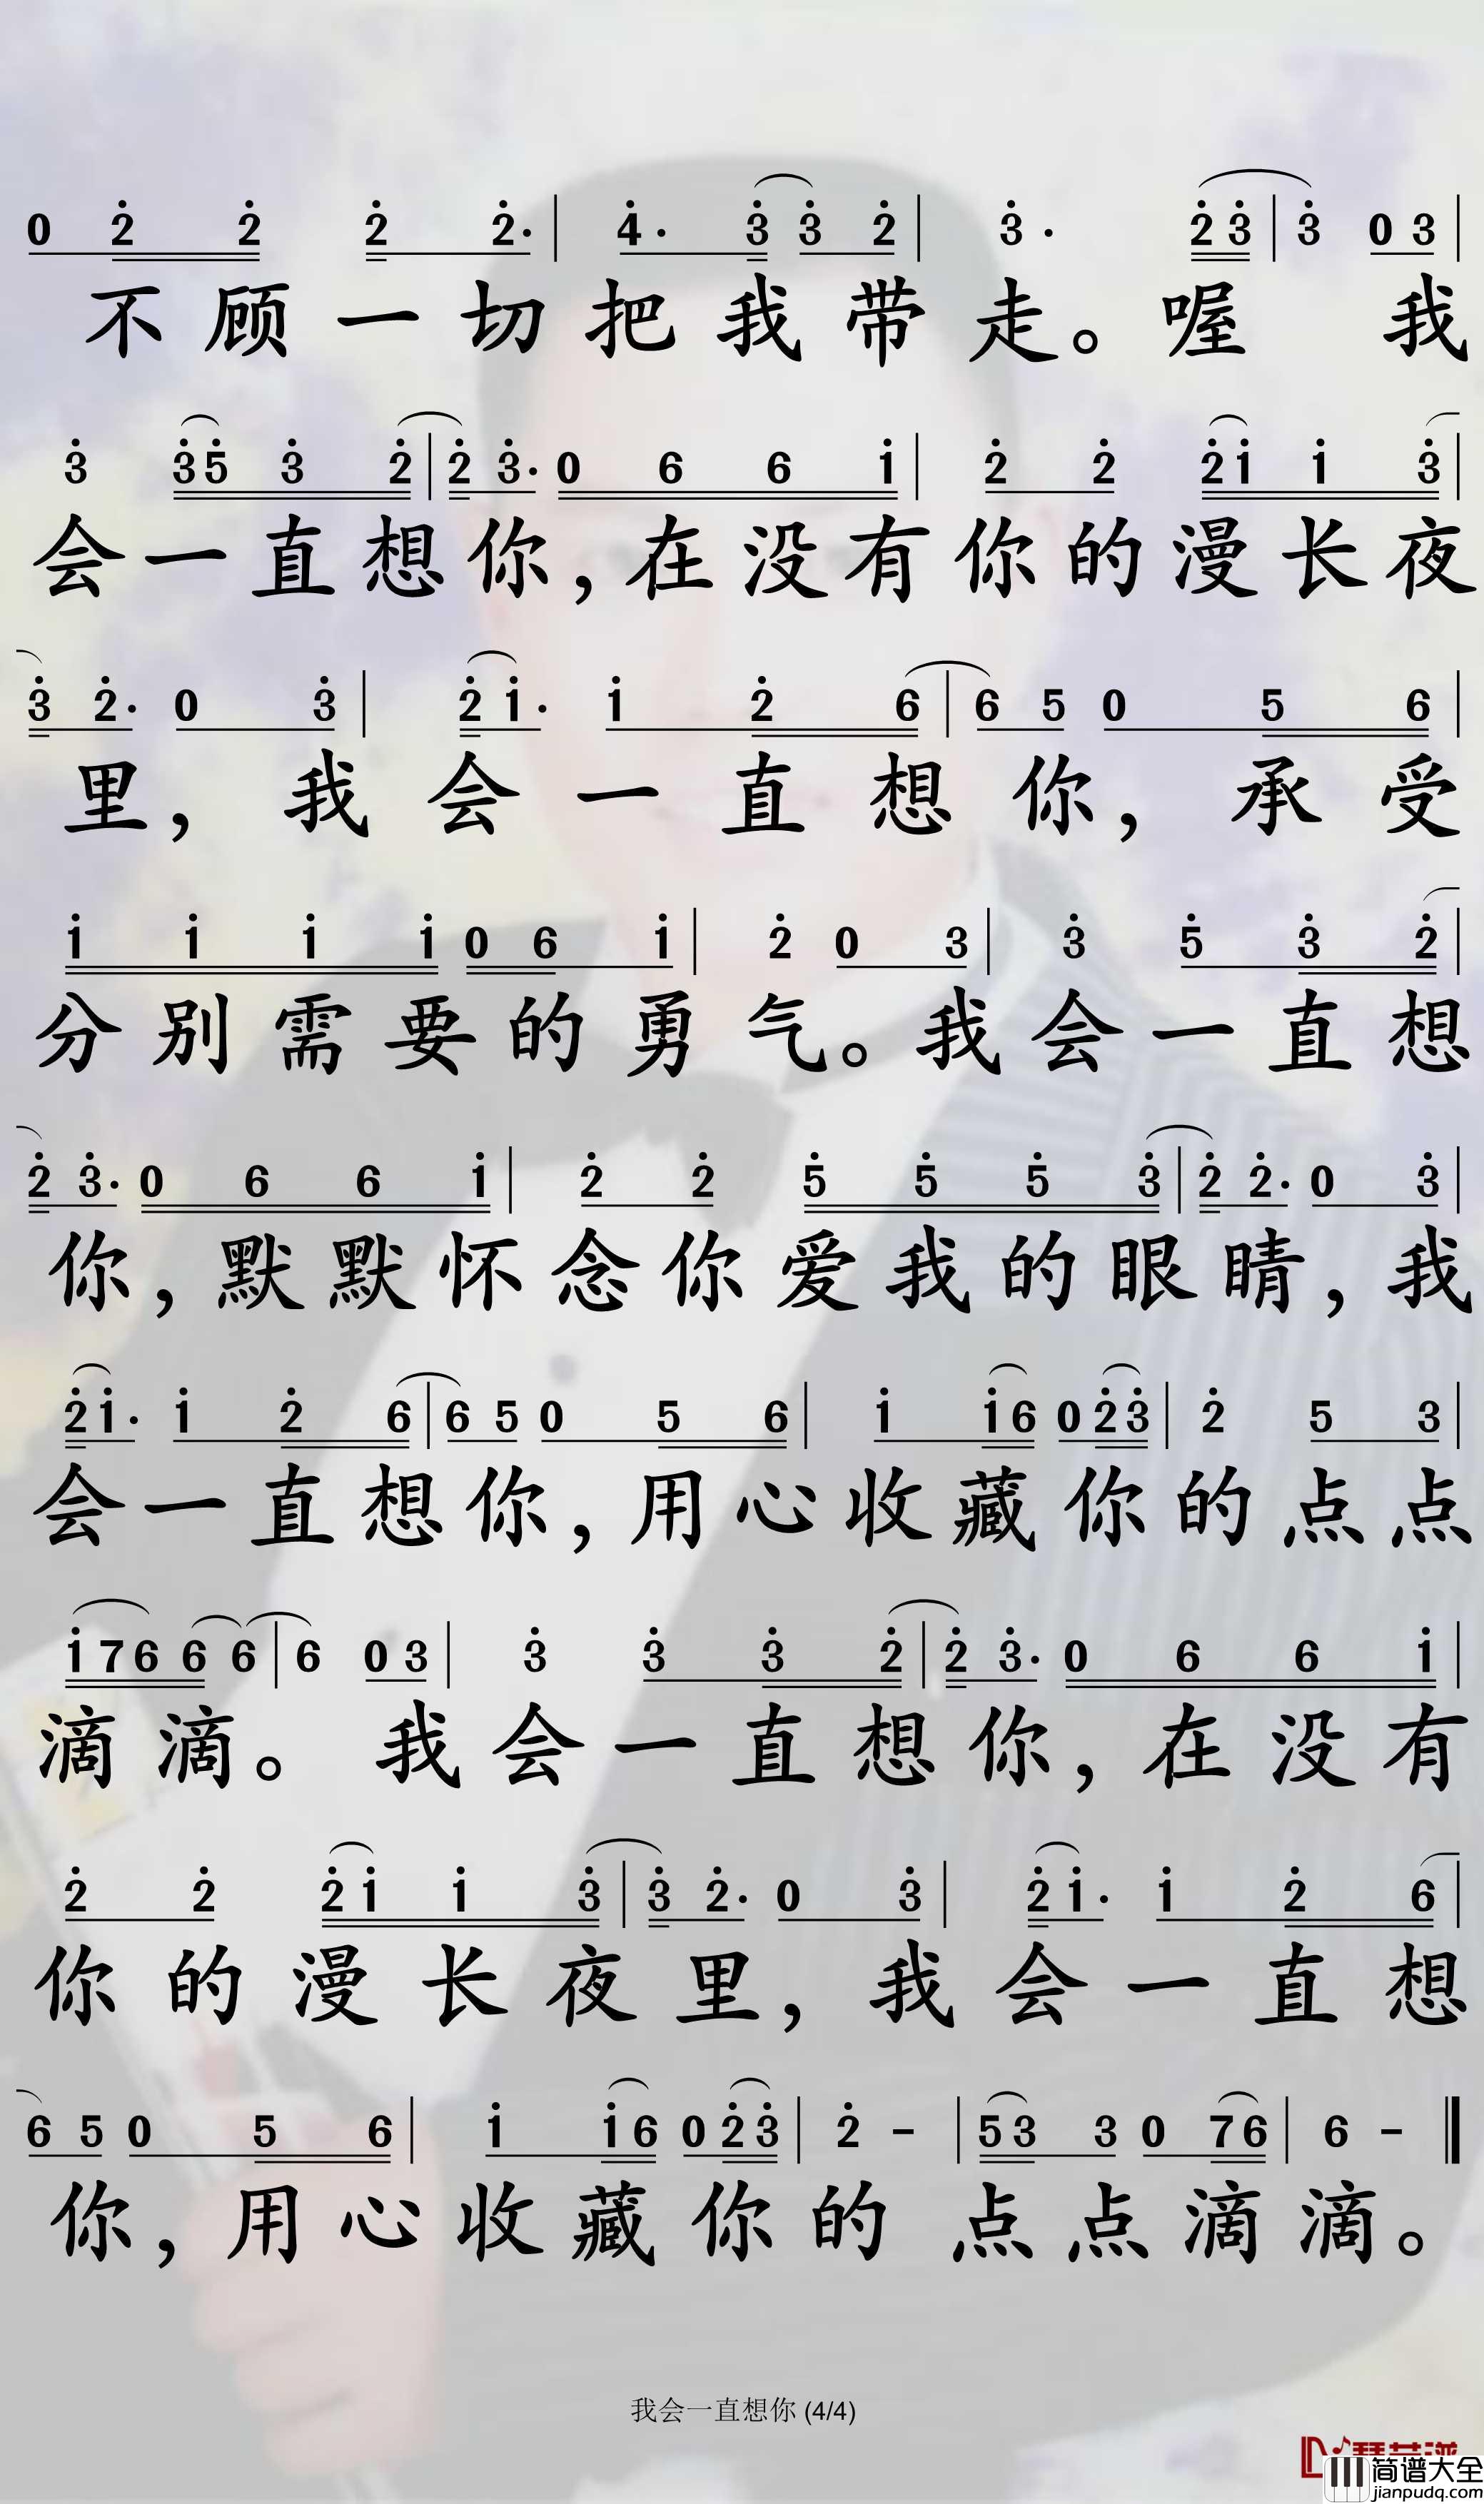 0 2 2 2 2· | 4· 3 3 2 | 3· 2 3 | 3 0 3 |
不顾一切把我带走。喔 我
3 3 5 3 2 | 2 3· 0 6 6 1 | 2 2 2 1 1 3 |
会一直想你,在没有你的漫长夜
3 2· 0 3 | 2 1· 1 2 6 | 6 5 0 5 6 |
里,我会一直想你,承受
1 1 1 1 0 6 1 | 2 0 3 | 3 5 3 2 |
分别需要的勇气。我会一直想
2 3· 0 6 6 1 | 2 2 5 5 5 3 | 2 2· 0 3 |
你,默默怀念你爱我的眼睛,我
2 1· 1 2 6 | 6 5 0 5 6 | 1 1 6 0 2 3 | 2 5 3 |
会一直想你,用心收藏你的点点
1 7 6 6 6 | 6 0 3 | 3 3 3 2 | 2 3· 0 6 6 1 |
滴滴。我会一直想你,在没有
2 2 2 1 1 3 | 3 2· 0 3 | 2 1· 1 2 6 |
你的漫长夜里,我会一直想
6 5 0 5 6 | 1 1 6 0 2 3 | 2 - | 5 3 3 0 7 6 | 6 - ‖
你,用心收藏你的 点点滴滴。
我会一直想你 (4/4)
简谱大全
jianpudq.com